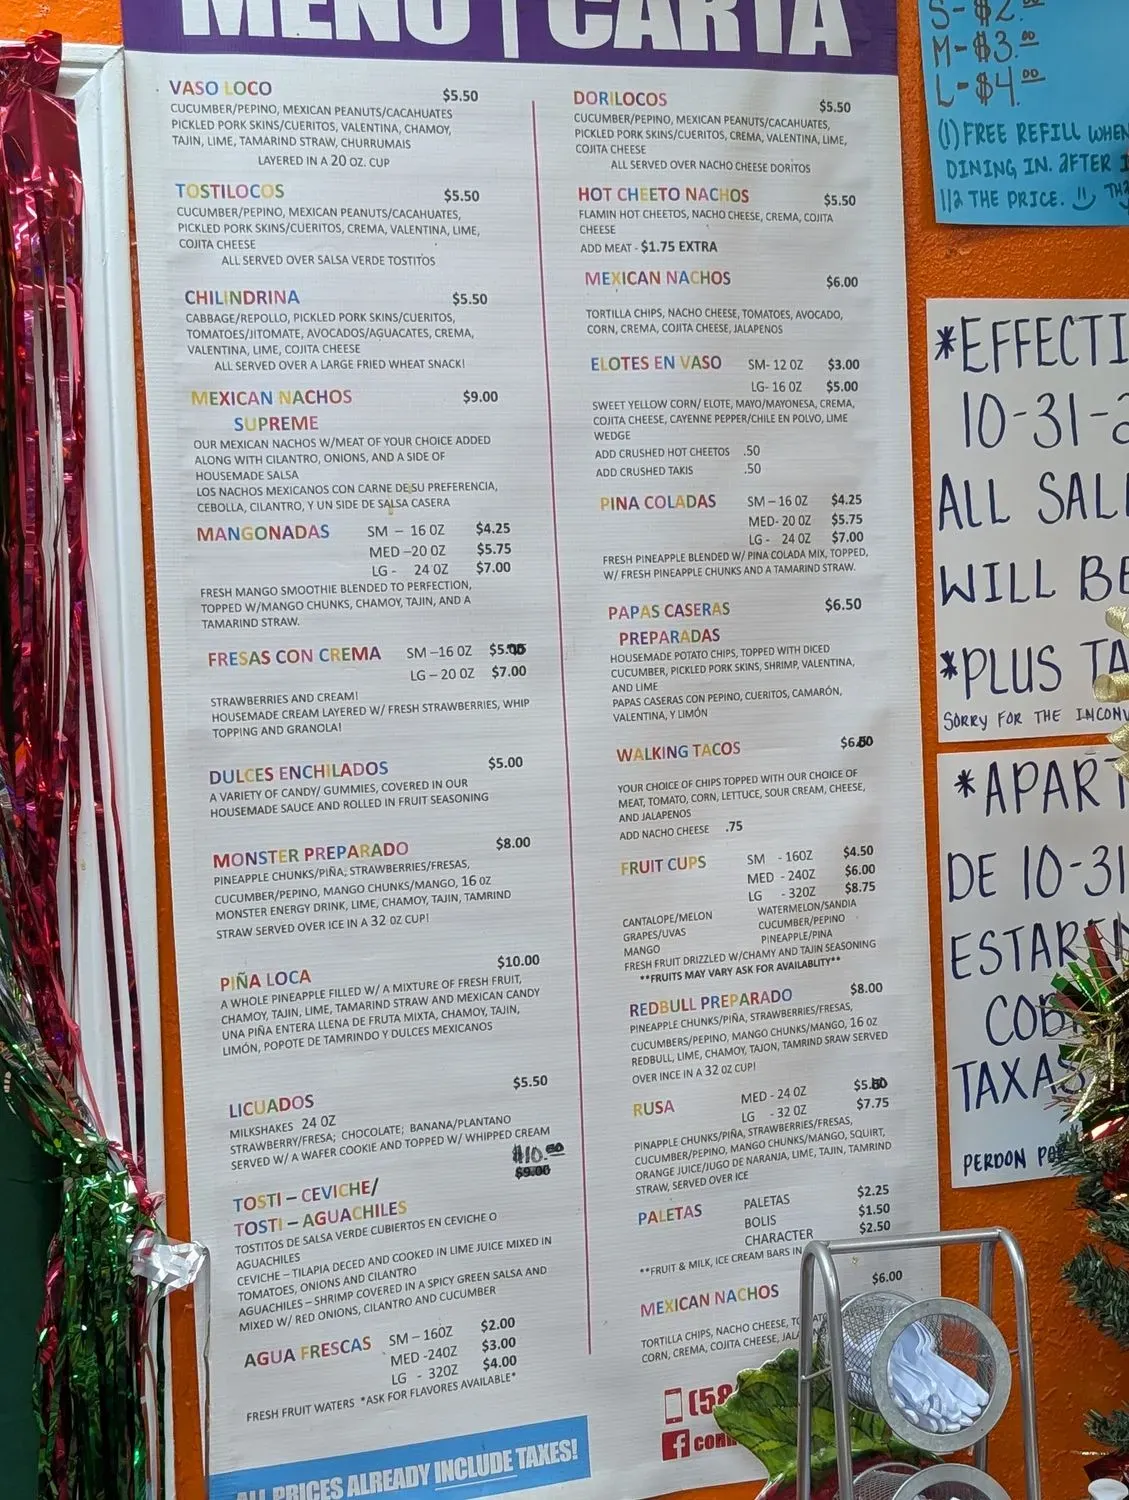 MENU | CARTA
VASO LOCO $5.50
CUCUMBER/PEPINO, MEXICAN PEANUTS/CACAHUATES
PICKLED PORK SKINS/CUERITOS, VALENTINA, CHAMOY,
TAJIN, LIME, TAMARIND STRAW, CHURRUMAIS
LAYERED IN A 20 OZ. CUP
TOSTILOCOS $5.50
CUCUMBER/PEPINO, MEXICAN PEANUTS/CACAHUATES,
PICKLED PORK SKINS/CUERITOS, CREMA, VALENTINA, LIME,
COJITA CHEESE
ALL SERVED OVER SALSA VERDE TOSTITOS
CHILINDRINA $5.50
CABBAGE/REPOLLO, PICKLED PORK SKINS/CUERITOS,
TOMATOES/JITOMATE, AVOCADOS/AGUACATES, CREMA,
VALENTINA, LIME, COJITA CHEESE
ALL SERVED OVER A LARGE FRIED WHEAT SNACK!
MEXICAN NACHOS $9.00
SUPREME
OUR MEXICAN NACHOS W/MEAT OF YOUR CHOICE ADDED
ALONG WITH CILANTRO, ONIONS, AND A SIDE OF
HOUSEMADE SALSA
LOS NACHOS MEXICANOS CON CARNE DE SU PREFERENCIA,
CEBOLLA, CILANTRO, Y UN SIDE DE SALSA CASERA
MANGONADAS SM – 16 OZ $4.25
MED –20 OZ $5.75
LG - 24 OZ $7.00
FRESH MANGO SMOOTHIE BLENDED TO PERFECTION,
TOPPED W/MANGO CHUNKS, CHAMOY, TAJIN, AND A
TAMARIND STRAW.
FRESAS CON CREMA SM –16 OZ
LG – 20 OZ $7.00
STRAWBERRIES AND CREAM!
HOUSEMADE CREAM LAYERED W/ FRESH STRAWBERRIES, WHIP
TOPPING AND GRANOLA!
DULCES ENCHILADOS $5.00
A VARIETY OF CANDY/ GUMMIES, COVERED IN OUR
HOUSEMADE SAUCE AND ROLLED IN FRUIT SEASONING
MONSTER PREPARADO $8.00
PINEAPPLE CHUNKS/PIÑA, STRAWBERRIES/FRESAS,
CUCUMBER/PEPINO, MANGO CHUNKS/MANGO, 16 OZ
MONSTER ENERGY DRINK, LIME, CHAMOY, TAJIN, TAMRIND
STRAW SERVED OVER ICE IN A 32 OZ CUP!
PIÑA LOCA $10.00
A WHOLE PINEAPPLE FILLED W/ A MIXTURE OF FRESH FRUIT,
CHAMOY, TAJIN, LIME, TAMARIND STRAW AND MEXICAN CANDY
UNA PIÑA ENTERA LLENA DE FRUTA MIXTA, CHAMOY, TAJIN,
LIMÓN, POPOTE DE TAMRINDO Y DULCES MEXICANOS
LICUADOS $5.50
MILKSHAKES 24 OZ
STRAWBERRY/FRESA; CHOCOLATE; BANANA/PLANTANO
SERVED W/ A WAFER COOKIE AND TOPPED W/ WHIPPED CREAM
$10.50
$9.00
TOSTI – CEVICHE/
TOSTI – AGUACHILES
TOSTITOS DE SALSA VERDE CUBIERTOS EN CEVICHE O
AGUACHILES
CEVICHE – TILAPIA DECED AND COOKED IN LIME JUICE MIXED IN
TOMATOES, ONIONS AND CILANTRO
AGUACHILES – SHRIMP COVERED IN A SPICY GREEN SALSA AND
MIXED W/ RED ONIONS, CILANTRO AND CUCUMBER
AGUA FRESCAS SM – 16OZ $2.00
MED -24OZ $3.00
LG - 32OZ $4.00
FRESH FRUIT WATERS *ASK FOR FLAVORES AVAILABLE*
ALL PRICES ALREADY INCLUDE TAXES!
DORILOCOS $5.50
CUCUMBER/PEPINO, MEXICAN PEANUTS/CACAHUATES,
PICKLED PORK SKINS/CUERITOS, CREMA, VALENTINA, LIME,
COJITA CHEESE
ALL SERVED OVER NACHO CHEESE DORITOS
HOT CHEETO NACHOS $5.50
FLAMIN HOT CHEETOS, NACHO CHEESE, CREMA, COJITA
CHEESE
ADD MEAT - $1.75 EXTRA
MEXICAN NACHOS $6.00
TORTILLA CHIPS, NACHO CHEESE, TOMATOES, AVOCADO,
CORN, CREMA, COJITA CHEESE, JALAPENOS
ELOTES EN VASO SM- 12 OZ $3.00
LG- 16 OZ $5.00
SWEET YELLOW CORN/ ELOTE, MAYO/MAYONESA, CREMA,
COJITA CHEESE, CAYENNE PEPPER/CHILE EN POLVO, LIME
WEDGE
ADD CRUSHED HOT CHEETOS .50
ADD CRUSHED TAKIS .50
PINA COLADAS SM – 16 OZ $4.25
MED- 20 OZ $5.75
LG - 24 OZ $7.00
FRESH PINEAPPLE BLENDED W/ PINA COLADA MIX, TOPPED,
W/ FRESH PINEAPPLE CHUNKS AND A TAMARIND STRAW.
PAPAS CASERAS $6.50
PREPARADAS
HOUSEMADE POTATO CHIPS, TOPPED WITH DICED
CUCUMBER, PICKLED PORK SKINS, SHRIMP, VALENTINA,
AND LIME
PAPAS CASERAS CON PEPINO, CUERITOS, CAMARÓN,
VALENTINA, Y LIMÓN
WALKING TACOS $6.50
YOUR CHOICE OF CHIPS TOPPED WITH OUR CHOICE OF
MEAT, TOMATO, CORN, LETTUCE, SOUR CREAM, CHEESE,
AND JALAPENOS
ADD NACHO CHEESE .75
FRUIT CUPS SM - 16OZ $4.50
MED - 24OZ $6.00
LG - 32OZ $8.75
CANTALOPE/MELON WATERMELON/SANDIA
GRAPES/UVAS CUCUMBER/PEPINO
MANGO PINEAPPLE/PINA
FRESH FRUIT DRIZZLED W/CHAMY AND TAJIN SEASONING
**FRUITS MAY VARY ASK FOR AVAILABLITY**
REDBULL PREPARADO $8.00
PINEAPPLE CHUNKS/PIÑA, STRAWBERRIES/FRESAS,
CUCUMBERS/PEPINO, MANGO CHUNKS/MANGO, 16 OZ
REDBULL, LIME, CHAMOY, TAJON, TAMRIND SRAW SERVED
OVER INCE IN A 32 OZ CUP!
RUSA MED - 24 OZ
LG - 32 OZ $7.75
PINAPPLE CHUNKS/PIÑA, STRAWBERRIES/FRESAS,
CUCUMBER/PEPINO, MANGO CHUNKS/MANGO, SQUIRT,
ORANGE JUICE/JUGO DE NARANJA, LIME, TAJIN, TAMRIND
STRAW, SERVED OVER ICE
PALETAS PALETAS $2.25
BOLIS $1.50
CHARACTER $2.50
**FRUIT & MILK, ICE CREAM BARS IN
MEXICAN NACHOS $6.00
TORTILLA CHIPS, NACHO CHEESE,
CORN, CREMA, COJITA CHEESE,
(58
S- $2.00
M- $3.00
L- $4.00
(1) FREE REFILL WHEN
DINING IN. AFTER 1
1/2 THE PRICE.
*EFFECTI
10-31-2
ALL SAL
WILL BE
*PLUS TA
SORRY FOR THE INCONV
*APART
DE 10-31
ESTAREN
COB
TAXAS
PERDON PO